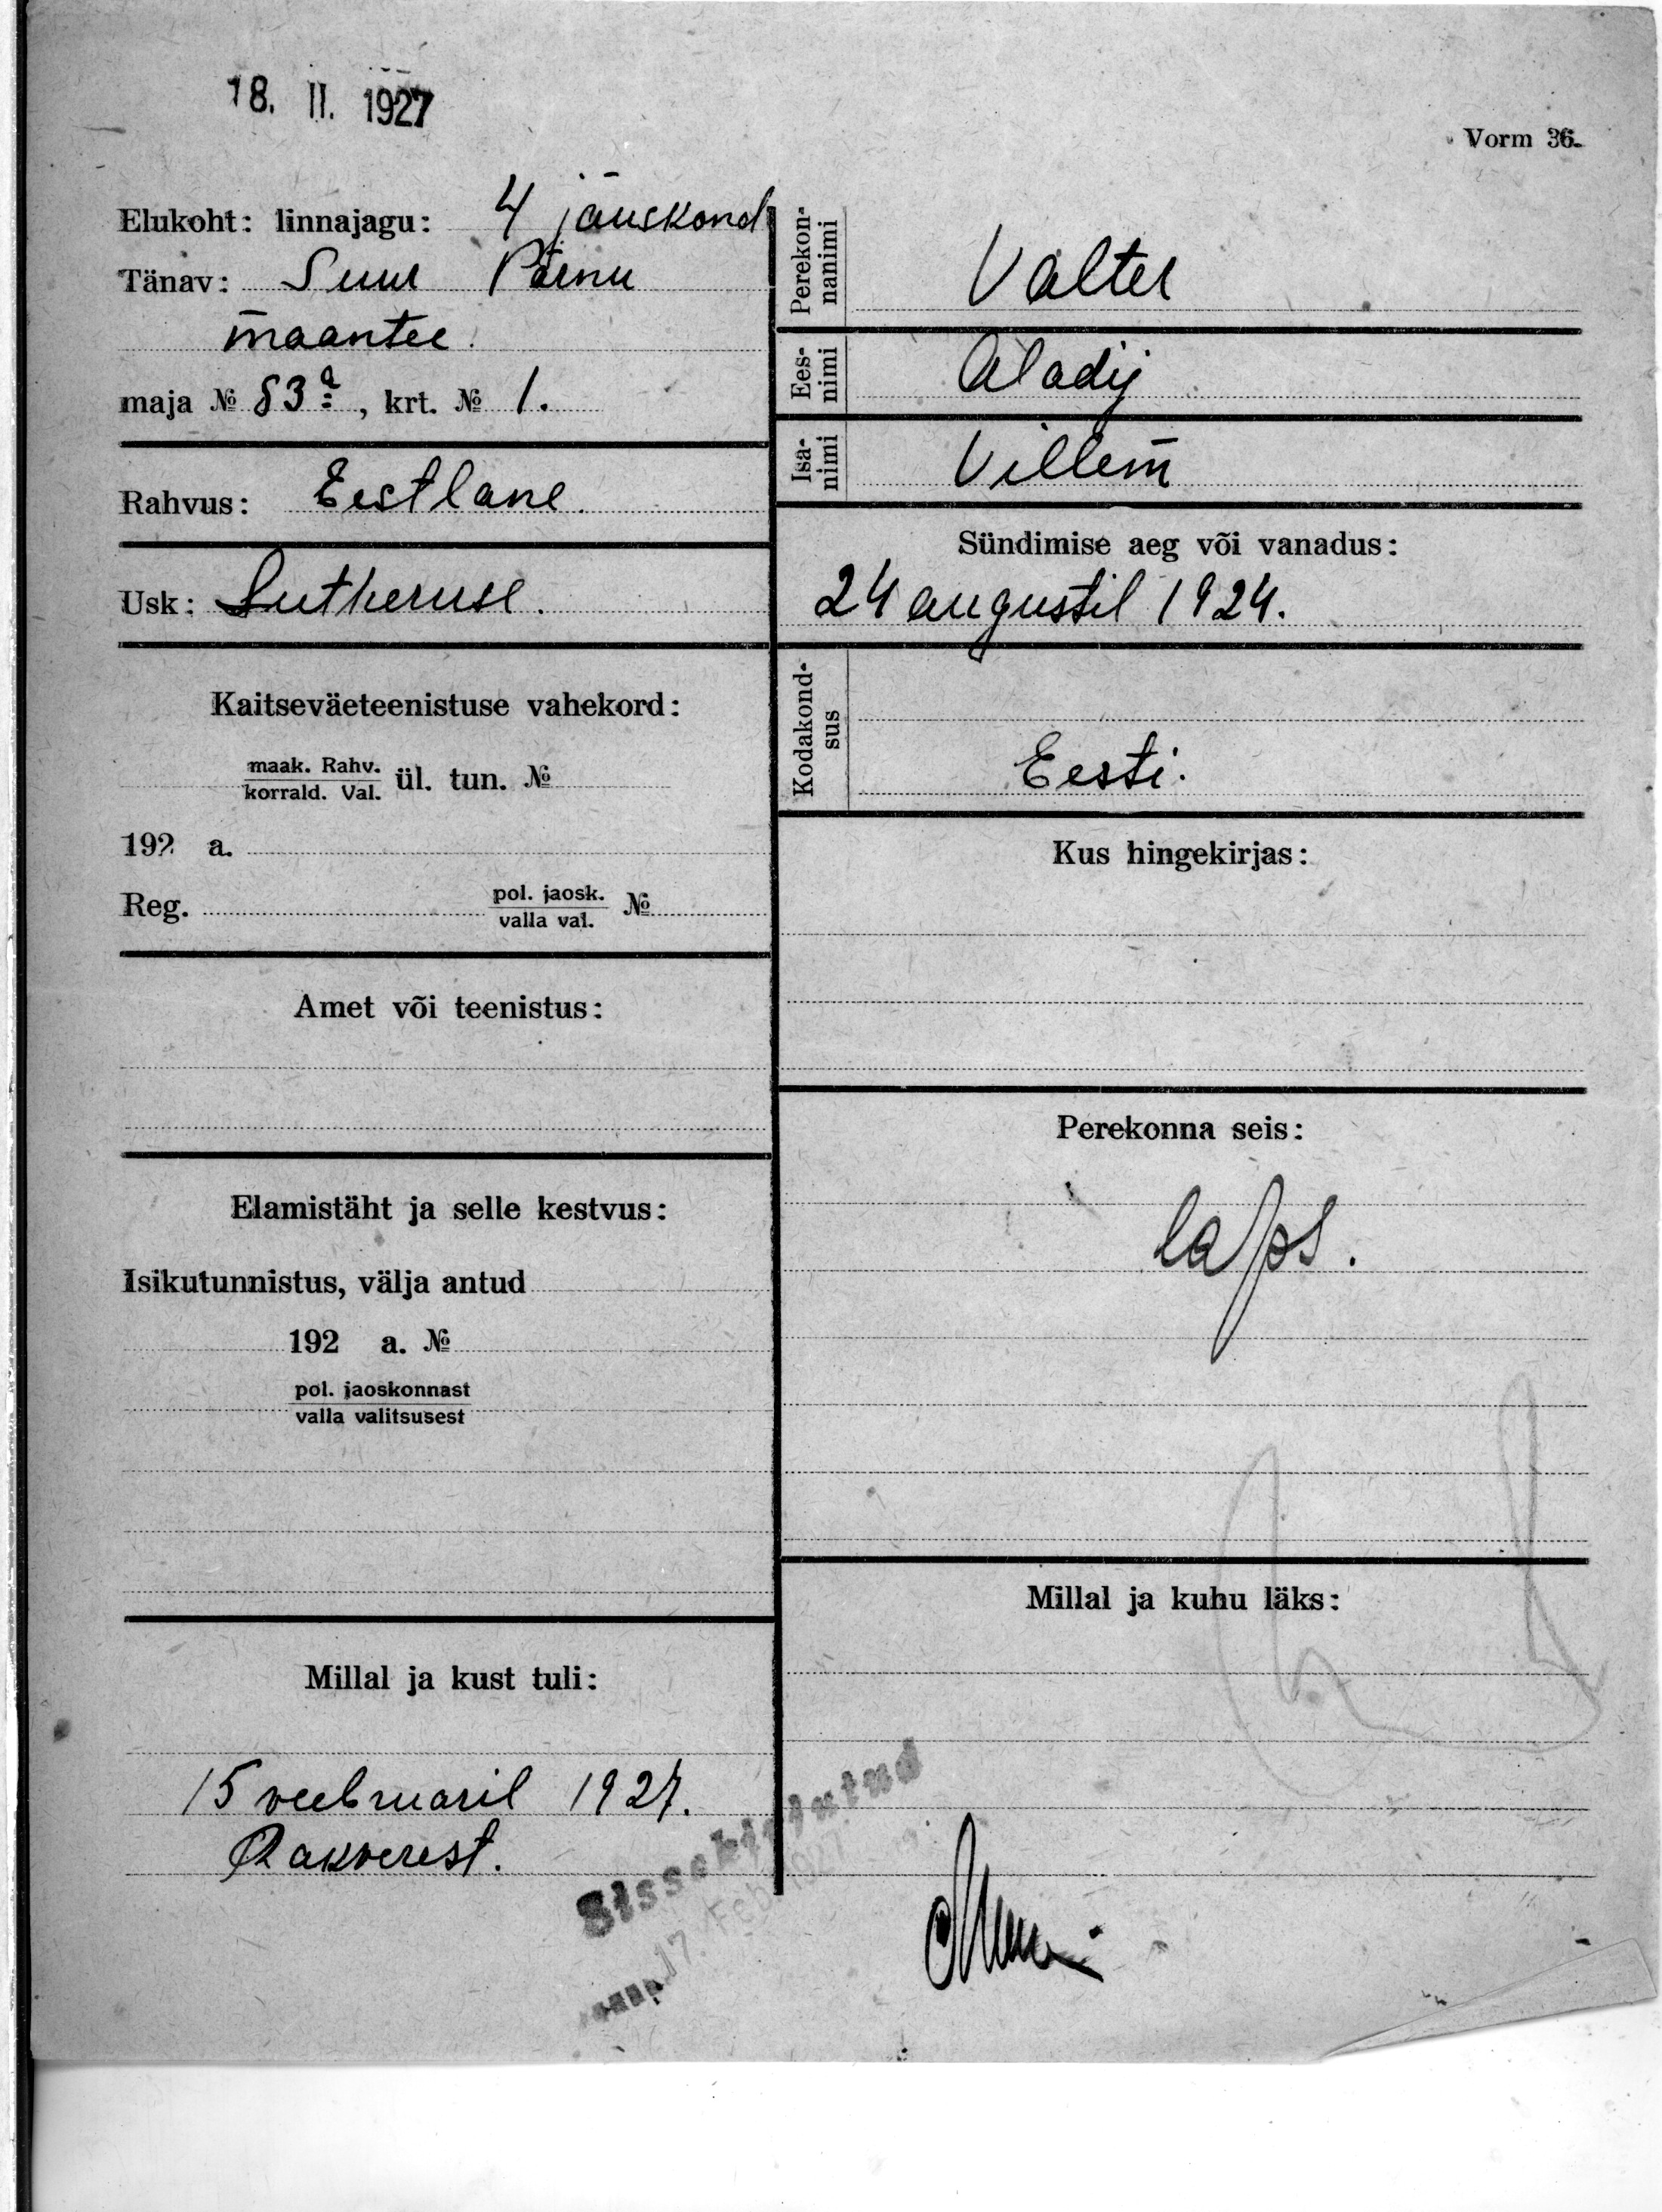 18. II. 1927
Vorm 36.
Elukoht: linnajagu: 4 jauskond
Tänav: Suur Pärnu
maantee.
maja № 83ª, krt. № 1.
Rahvus: Eestlane.
Usk: Lutheruse.
Kaitseväeteenistuse vahekord:
maak. Rahv.
korrald. Val. ül. tun. №
192 a.
Reg. pol. jaosk. №
valla val.
Amet või teenistus:
Elamistäht ja selle kestvus:
Isikutunnistus, välja antud
192 a. №
pol. jaoskonnast
valla valitsusest
Millal ja kust tuli:
15 veebruaril 1927.
Rakverest.
Perekon-
nanimi
Valter
Ees-
nimi
Aladij
Isa-
nimi
Villem
Sündimise aeg või vanadus:
24 augustil 1924.
Kodakond-
sus
Eesti.
Kus hingekirjas:
Perekonna seis:
laps.
Millal ja kuhu läks:
Sissekirjutud
17. Feb. 1927